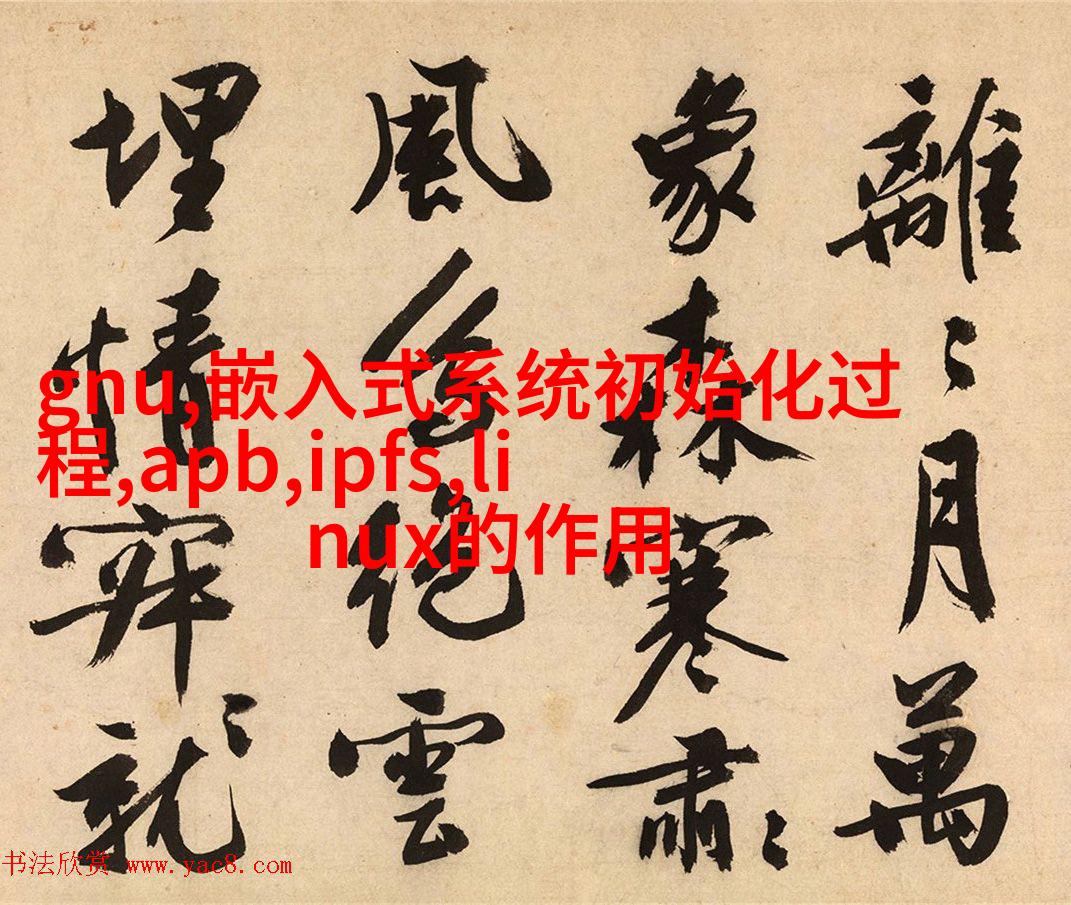 離〻月萬
象森寒肅〻
風絕雲
埋情就
gnu,嵌入式系统初始化过
程,apb,ipfs,li
nux的作用
书法欣赏 www.yac8.com